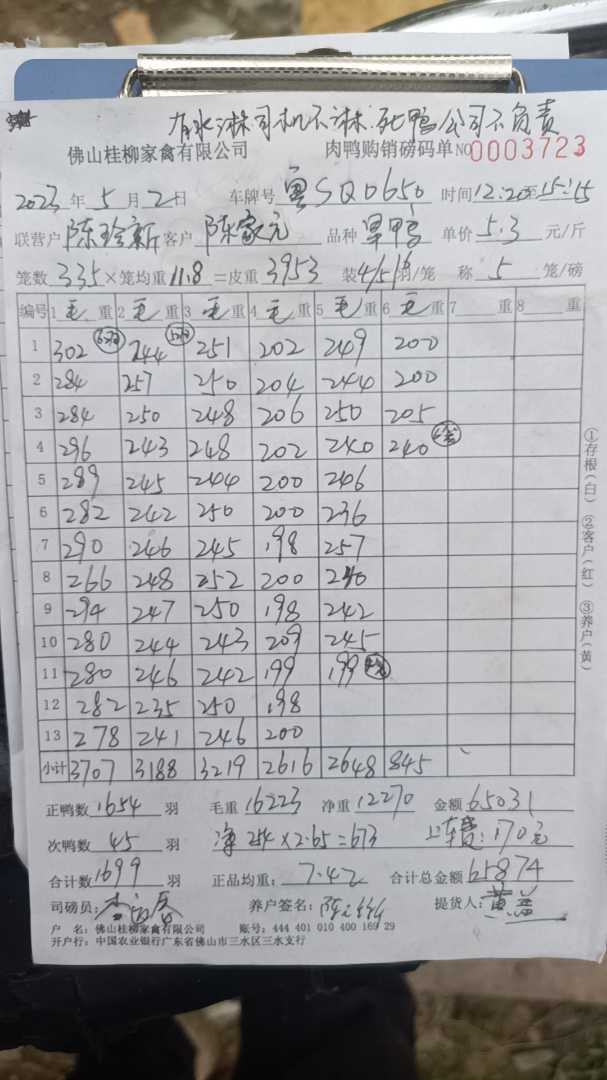 有水淋司机不淋.死鸭公司不负责
佛山桂柳家禽有限公司 肉鸭购销磅码单 NO 0003723
2023年5月2日 车牌号 粤SQ0650 时间12:20至15:15
联营户 陈珍新 客户 陈家元 品种 旱鸭 单价 5.3 元/斤
笼数 335×笼均重 11.8 =皮重 3953 装4/5/6羽/笼 称 5 笼/磅
编号 1 毛 重 2 毛 重 3 毛 重 4 毛 重 5 毛 重 6 毛 重 7 重 8 重
1 302 244 251 202 249 200
2 284 257 250 204 244 200
3 284 250 248 206 250 205
4 296 243 248 202 240 240
5 289 245 244 200 246
6 282 242 250 200 236
7 290 246 245 198 257
8 266 248 252 200 240
9 294 247 250 198 242
10 280 244 243 209 245
11 280 246 242 199 199
12 282 235 250 198
13 278 241 246 200
小计 3707 3188 3219 2616 2648 845
正鸭数 1654 羽 毛重 16223 净重 12270 金额 65031
次鸭数 45 羽 净 254×2.65=673 上车费:170元
合计数 1699 羽 正品均重: 7.42 合计总金额 65874
司磅员: 养户签名: 提货人: 黄
户 名: 佛山桂柳家禽有限公司 账号: 444 401 010 400 169 29
开户行: 中国农业银行广东省佛山市三水区三水支行
①存根(白) ②客户(红) ③养户(黄)